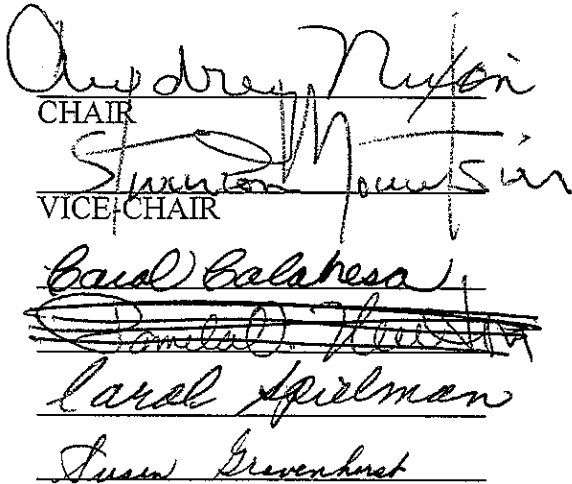 Audrey Nixon
CHAIR
VICE-CHAIR
Carol Calabresa
Pamela O. Newton
Carol Spielman
Susan Gravenhorst